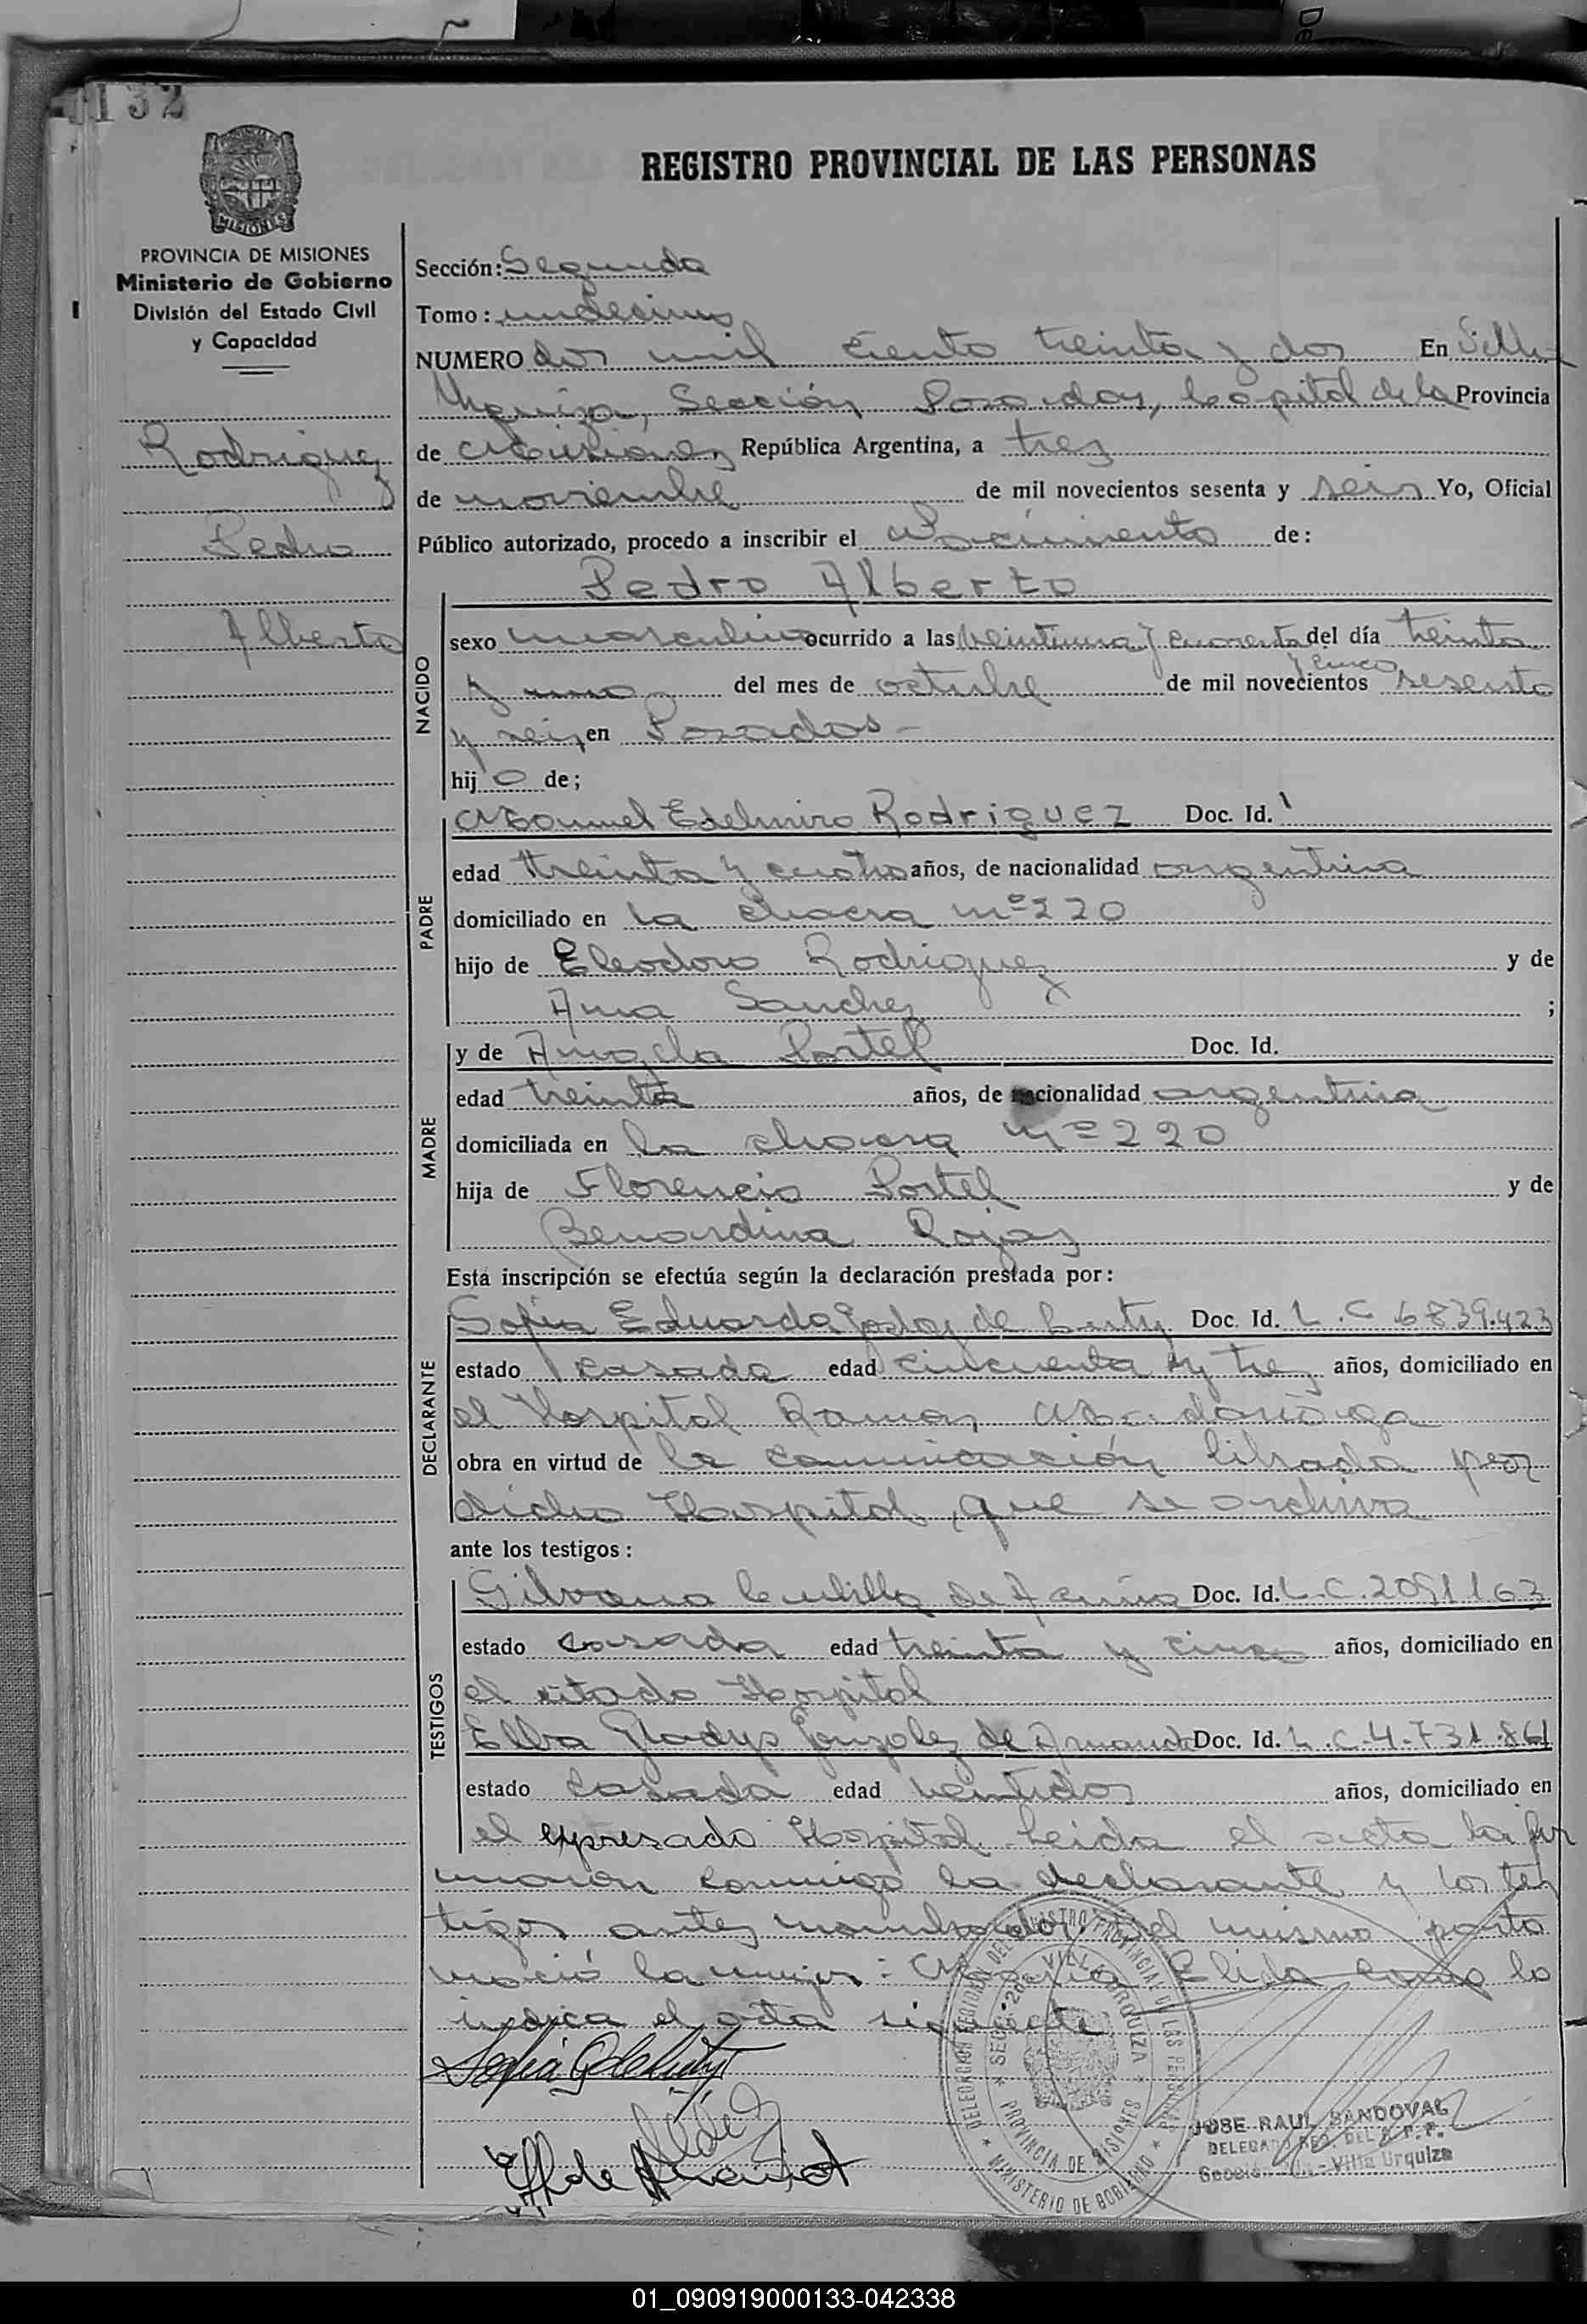 132
REGISTRO PROVINCIAL DE LAS PERSONAS
PROVINCIA DE MISIONES
Ministerio de Gobierno
División del Estado Civil
y Capacidad
Rodriguez
Pedro
Alberto
Sección: Segunda
Tomo: undecimo
NUMERO dos mil ciento treinta y dos En Villa
Urquiza, Sección Posadas, Capital de la Provincia
de Misiones República Argentina, a tres
de noviembre de mil novecientos sesenta y seis Yo, Oficial
Público autorizado, procedo a inscribir el Nacimiento de:
Pedro Alberto
NACIDO
sexo masculino ocurrido a las veintiuna y cuarenta del día treinta
y cinco
y uno del mes de octubre de mil novecientos sesenta
y seis en Posadas -
hijo de;
PADRE
Manuel Edelmiro Rodriguez Doc. Id.
edad treinta y cuatro años, de nacionalidad argentina
domiciliado en la chacra nº 220
hijo de Eleodoro Rodriguez y de
Ana Sanchez ;
MADRE
y de Angela Portel Doc. Id.
edad treinta años, de nacionalidad argentina
domiciliada en la chacra nº 220
hija de Florencio Portel y de
Benardina Rojas
Esta inscripción se efectúa según la declaración prestada por:
DECLARANTE
Sofia Eduarda Godoy de Doc. Id. L.C 6839.423
estado casada edad cincuenta y tres años, domiciliado en
el Hospital Ramon Madariaga
obra en virtud de la comunicación librada por
dicho Hospital, que se archiva
ante los testigos:
TESTIGOS
Silvana de Acuña Doc. Id. L.C. 2091163
estado casada edad treinta y cinco años, domiciliado en
el citado Hospital
Elba Gladys Gonzalez de Doc. Id. L.C.4.731.861
estado casada edad veintidos años, domiciliado en
el expresado Hospital. Leida el acta la fir
maron conmigo la declarante y los tes
tigos antes nombrados. Del mismo parto
nació la mujer: Maria Elida como lo
indica el acta siguiente
DELEGACION REGISTRO PROVINCIAL DE LAS PERSONAS
SECC. 2da VILLA URQUIZA
PROVINCIA DE MISIONES
MINISTERIO DE GOBIERNO
JOSE RAUL SANDOVAL
DELEGADO REG. DEL R.P.P.
Sección - Villa Urquiza
01_090919000133-042338